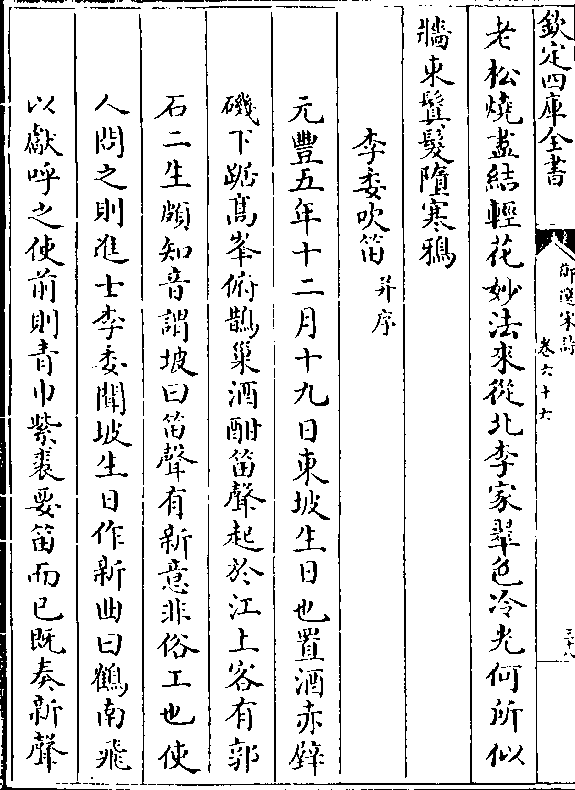 欽定四庫全書
御選宋詩
卷六十六
三十八
老松燒盡結輕花妙法來從北李家翠色冷光何所似
牆東鬒髮墮寒鴉
李委吹笛 并序
元豐五年十二月十九日東坡生日也置酒赤壁
磯下踞髙峯俯鵲巢酒酣笛聲起於江上客有郭
石二生頗知音謂坡曰笛聲有新意非俗工也使
人問之則進士李委聞坡生日作新曲曰鶴南飛
以獻呼之使前則青巾紫裘要笛而已既奏新聲